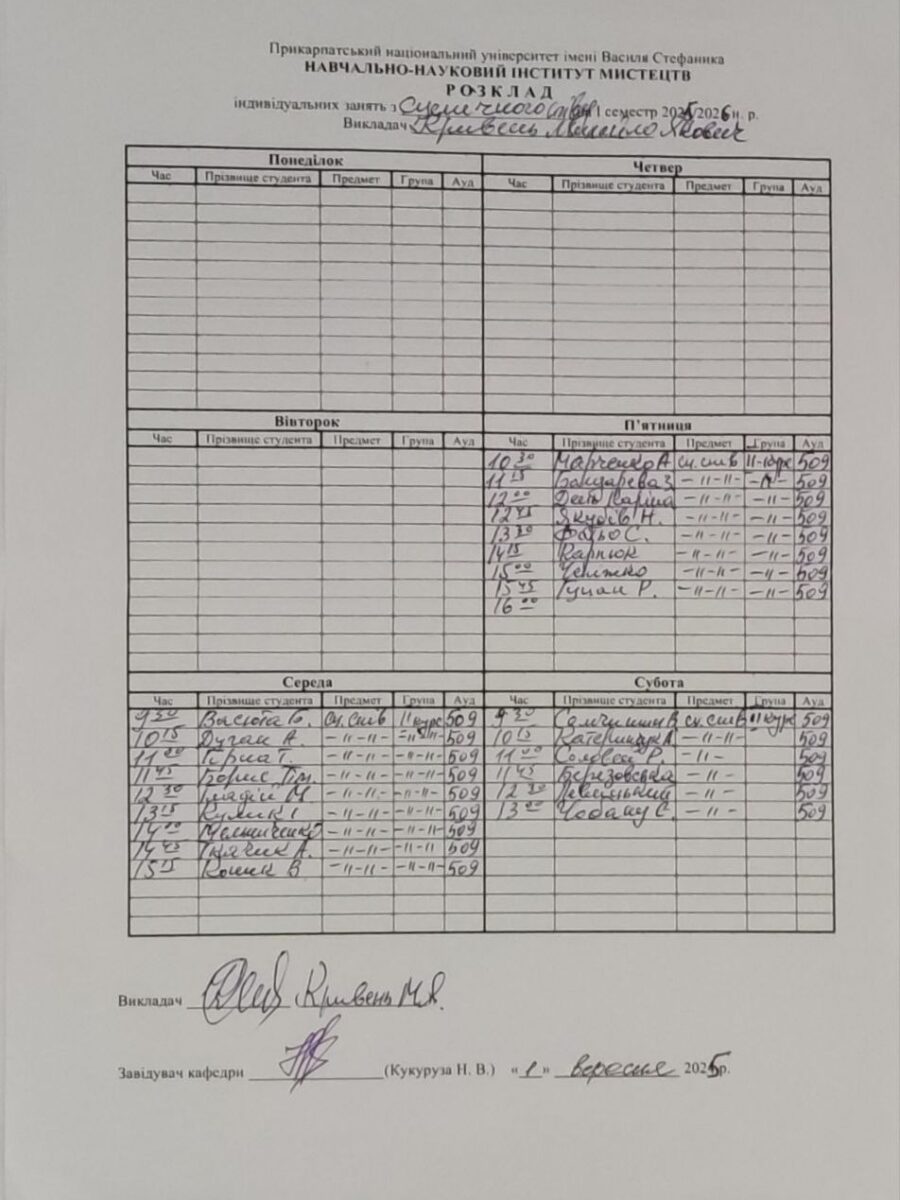 Прикарпатський національний університет імені Василя Стефаника
НАВЧАЛЬНО-НАУКОВИЙ ІНСТИТУТ МИСТЕЦТВ
РОЗКЛАД
індивідуальних занять з сценічного співу І семестр 2025/2026 н. р.
Викладач Кривень Михайло Якович
Понеділок
Час Прізвище студента Предмет Група Ауд
Четвер
Час Прізвище студента Предмет Група Ауд
Вівторок
Час Прізвище студента Предмет Група Ауд
П'ятниця
Час Прізвище студента Предмет Група Ауд
10 30 Марченко А сц. спів ІІ-курс 509
11 15 Бондарева З -//-//- -//- 509
12 00 -//-//- -//- 509
12 45 Якубів Н. -//-//- -//- 509
13 30 С. -//-//- -//- 509
14 15 Карпюк -//-//- -//- 509
15 00 -//-//- -//- 509
15 45 Р. -//-//- -//- 509
16 00
Середа
Час Прізвище студента Предмет Група Ауд
9 30 Васюта Б. сц. спів ІІ курс 509
10 15 Дучак А. -//-//- -//-//- 509
11 00 Т. -//-//- -//-//- 509
11 45 Борис Тім. -//-//- -//-//- 509
12 30 М. -//-//- -//-//- 509
13 15 Кулик І -//-//- -//-//- 509
14 00 Мельниченко -//-//- -//-//- 509
14 45 Ткачик А. -//-//- -//-//- 509
15 15 Коник В -//-//- -//-//- 509
Субота
Час Прізвище студента Предмет Група Ауд
9 30 сц. спів ІІ курс 509
10 15 Катеринчук -//-//- 509
11 00 Соловей Р. -//- 509
11 45 Березовська -//- 509
12 30 Левицький -//- 509
13 00 Чобану С. -//- 509
Викладач Кривень М.Я.
Завідувач кафедри (Кукуруза Н. В.) «1» вересня 2025р.